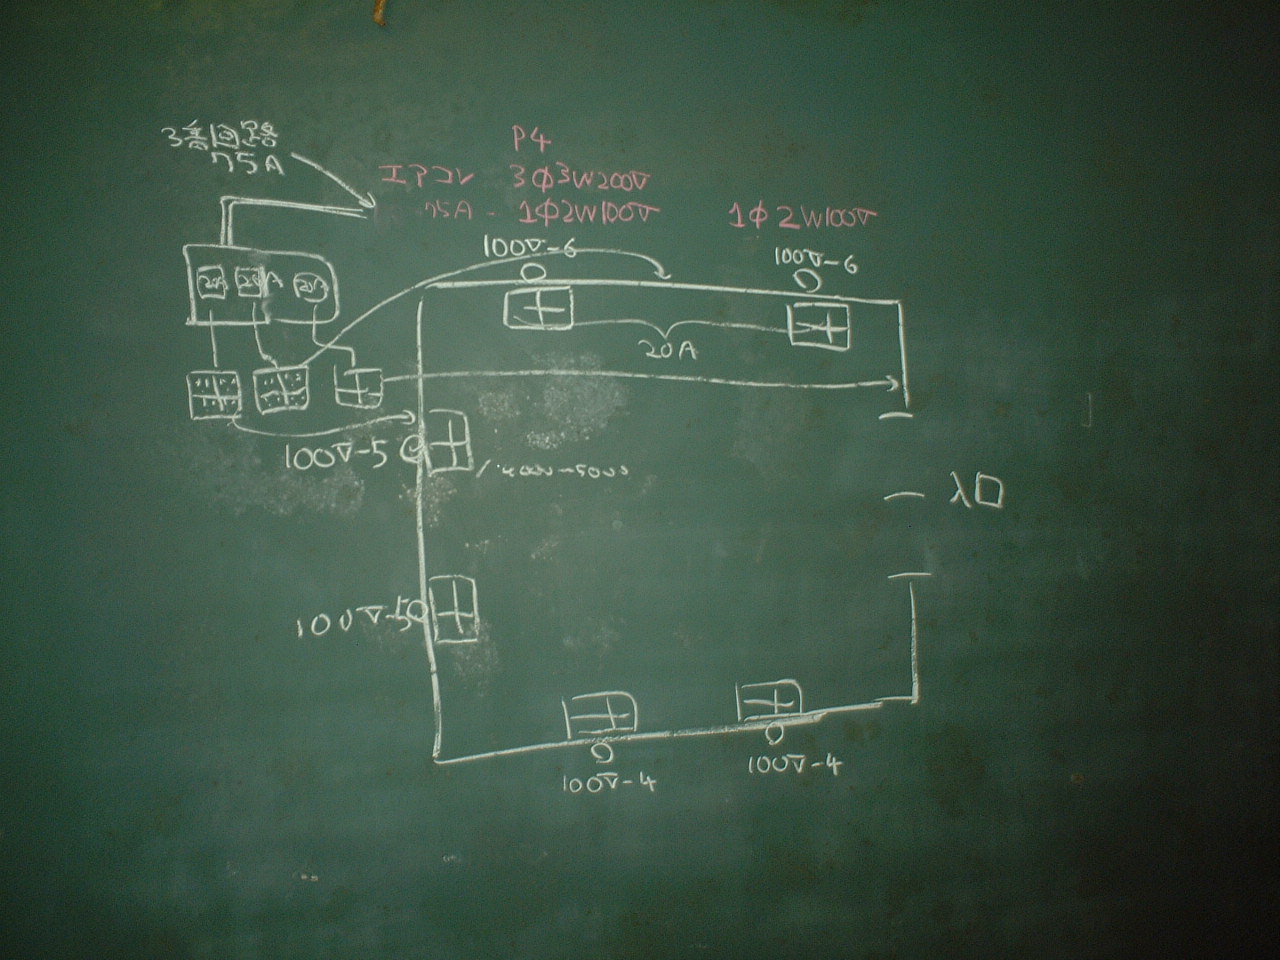 3番回路
75A
P4
エアコン 3φ3W200V
75A - 1φ2W100V
1φ2W100V
100V-6
100V-6
20A
20A
20A
20A
100V-5
入口
100V-5
100V-4
100V-4